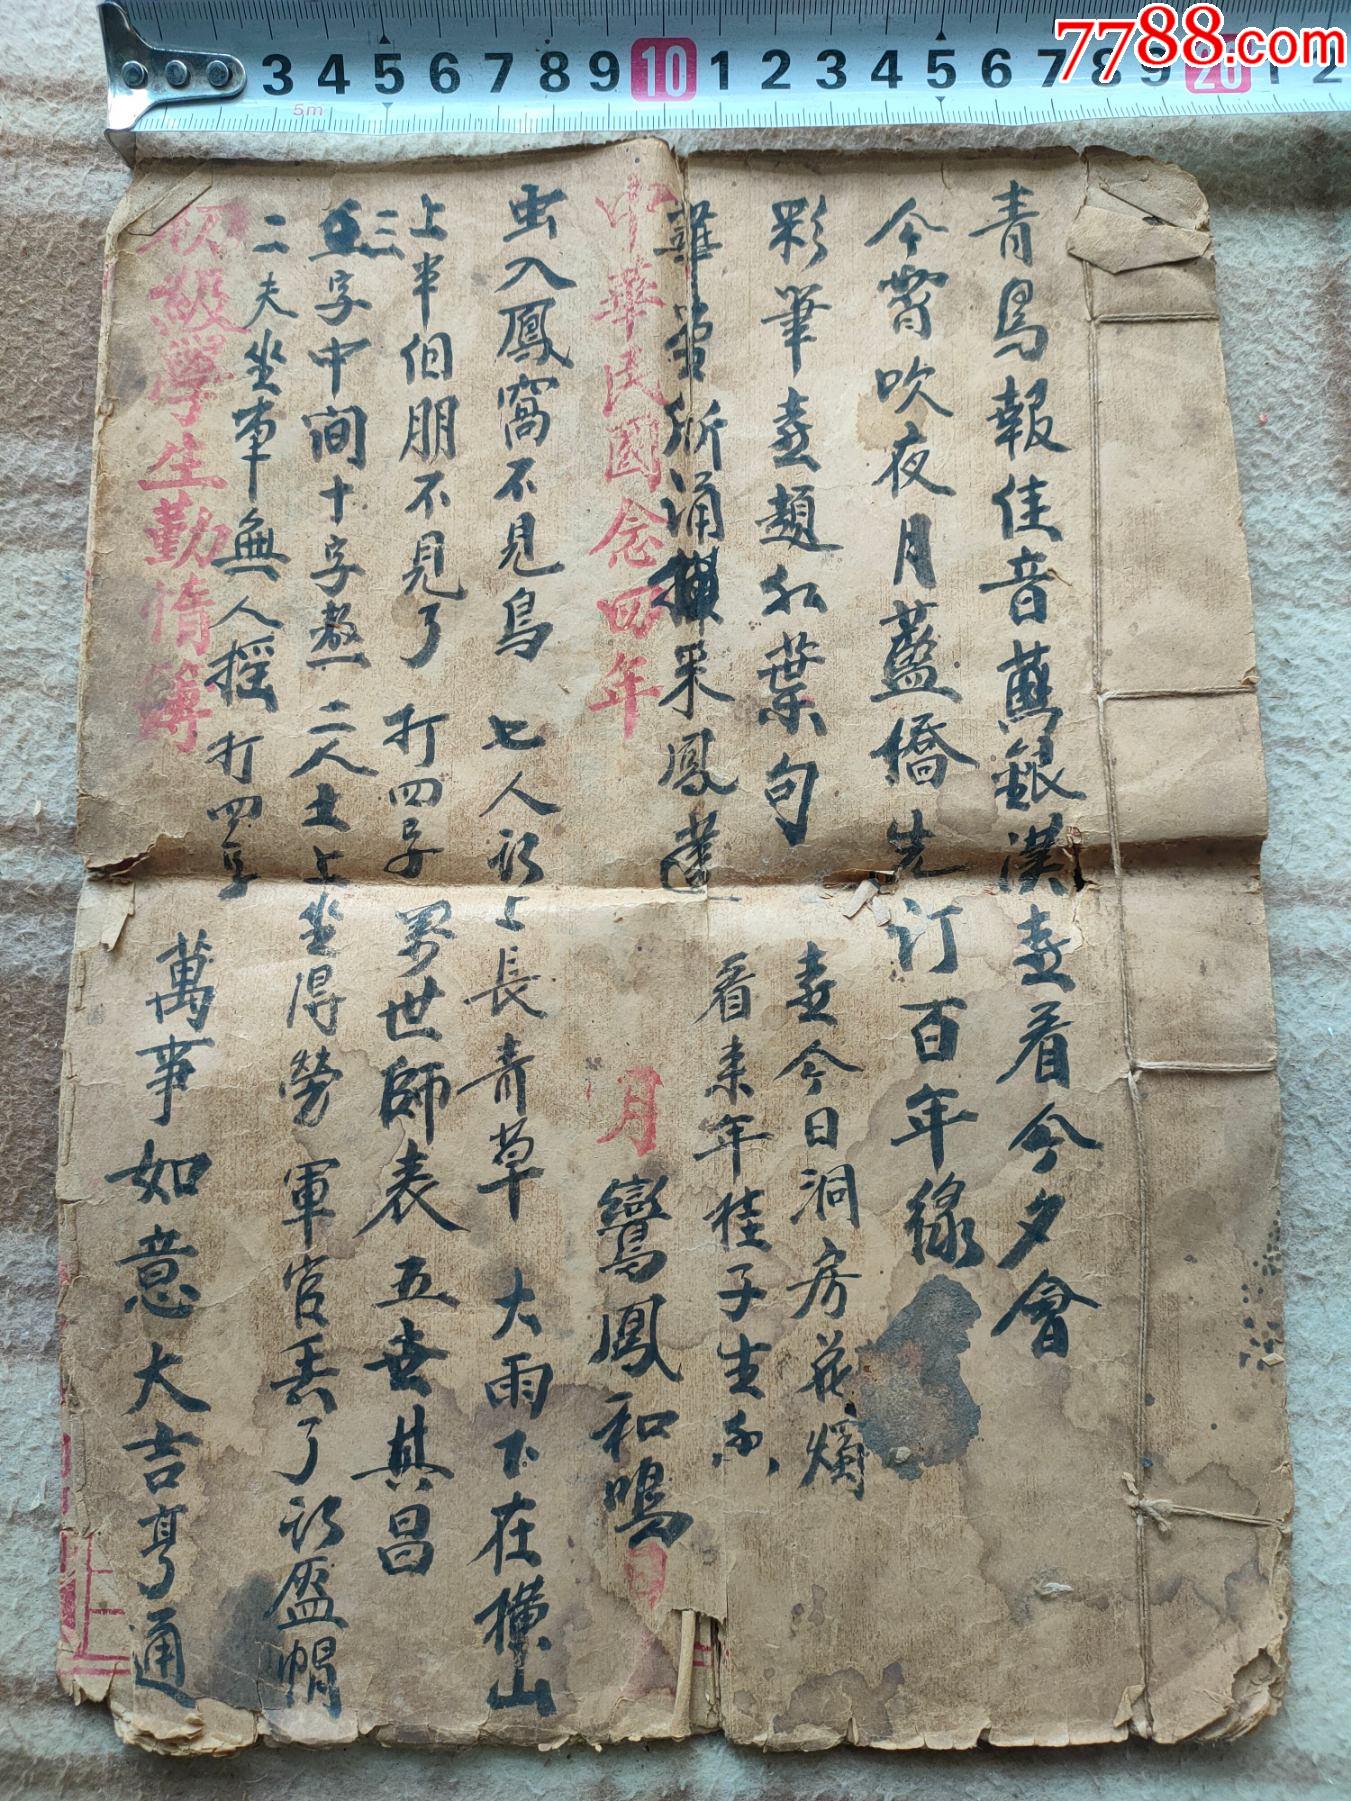 7788.com
3 4 5 6 7 8 9 10 1 2 3 4 5 6 7 8 9 20 1 2
5m
青鳥報佳音 銀漢 看今夕會
今宵吹夜月藍橋先訂百年緣
彩筆 題紅葉句
今日洞房花燭
華堂 采鳳
看来年桂子生香
中華民國念四年 月 日
鸞鳳和鳴
虫入鳳窩不見鳥 七人 上長青草 大雨下在横山
上半伯朋不見了 打四字 萬世師表 五世其昌
五字中间十字 二人土上坐 得勞 軍官丢了 盔帽
二夫坐車無人摇 打四字
萬事如意大吉亨通
初級學生勤惰簿